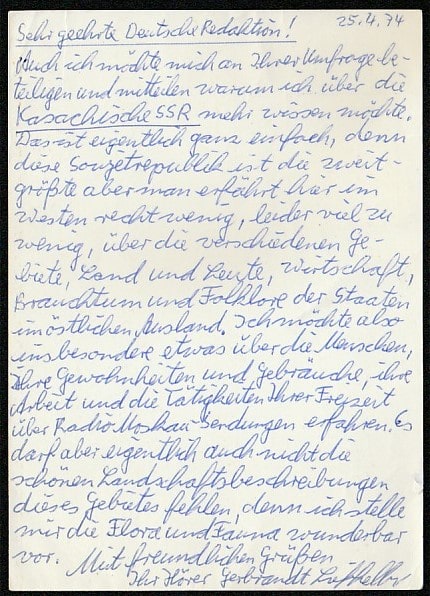 Sehr geehrte Deutsche Redaktion! 25.4.74
Auch ich möchte mich an Ihrer Umfrage be-
teiligen und mitteilen warum ich über die
Kasachische SSR mehr wissen möchte.
Das ist eigentlich ganz einfach, denn
diese Sowjetrepublik ist die zweit-
größte aber man erfährt hier im
Westen recht wenig, leider viel zu
wenig, über die verschiedenen Ge-
biete, Land und Leute, Wirtschaft,
Brauchtum und Folklore der Staaten
im östlichen Ausland. Ich möchte also
insbesondere etwas über die Menschen,
ihre Gewohnheiten und Gebräuche, ihre
Arbeit und die Tätigkeiten Ihrer Freizeit
über Radio Moskau-Sendungen erfahren. Es
darf aber eigentlich auch nicht die
schönen Landschaftsbeschreibungen
dieses Gebietes fehlen, denn ich stelle
mir die Flora und Fauna wunderbar
vor. Mit freundlichen Grüßen
Ihr Hörer Gerbrandt